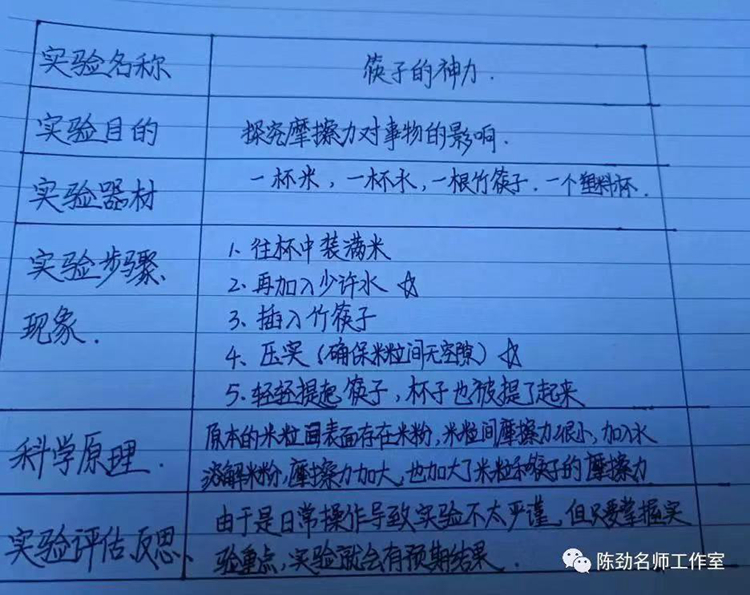 实验名称
筷子的神力.
实验目的
探究摩擦力对事物的影响.
实验器材
一杯米，一杯水，一根竹筷子.一个塑料杯.
实验步骤、
现象.
1、往杯中装满米
2、再加入少许水 ☆
3、插入竹筷子
4、压实（确保米粒间无空隙）☆
5、轻轻提起筷子，杯子也被提了起来
科学原理.
原本的米粒间表面存在米粉，米粒间摩擦力很小，加入水
溶解米粉，摩擦力加大，也加大了米粒和筷子的摩擦力
实验评估、反思、
由于是日常操作导致实验不太严谨，但只要掌握实
验重点，实验就会有预期结果.
陈劲名师工作室